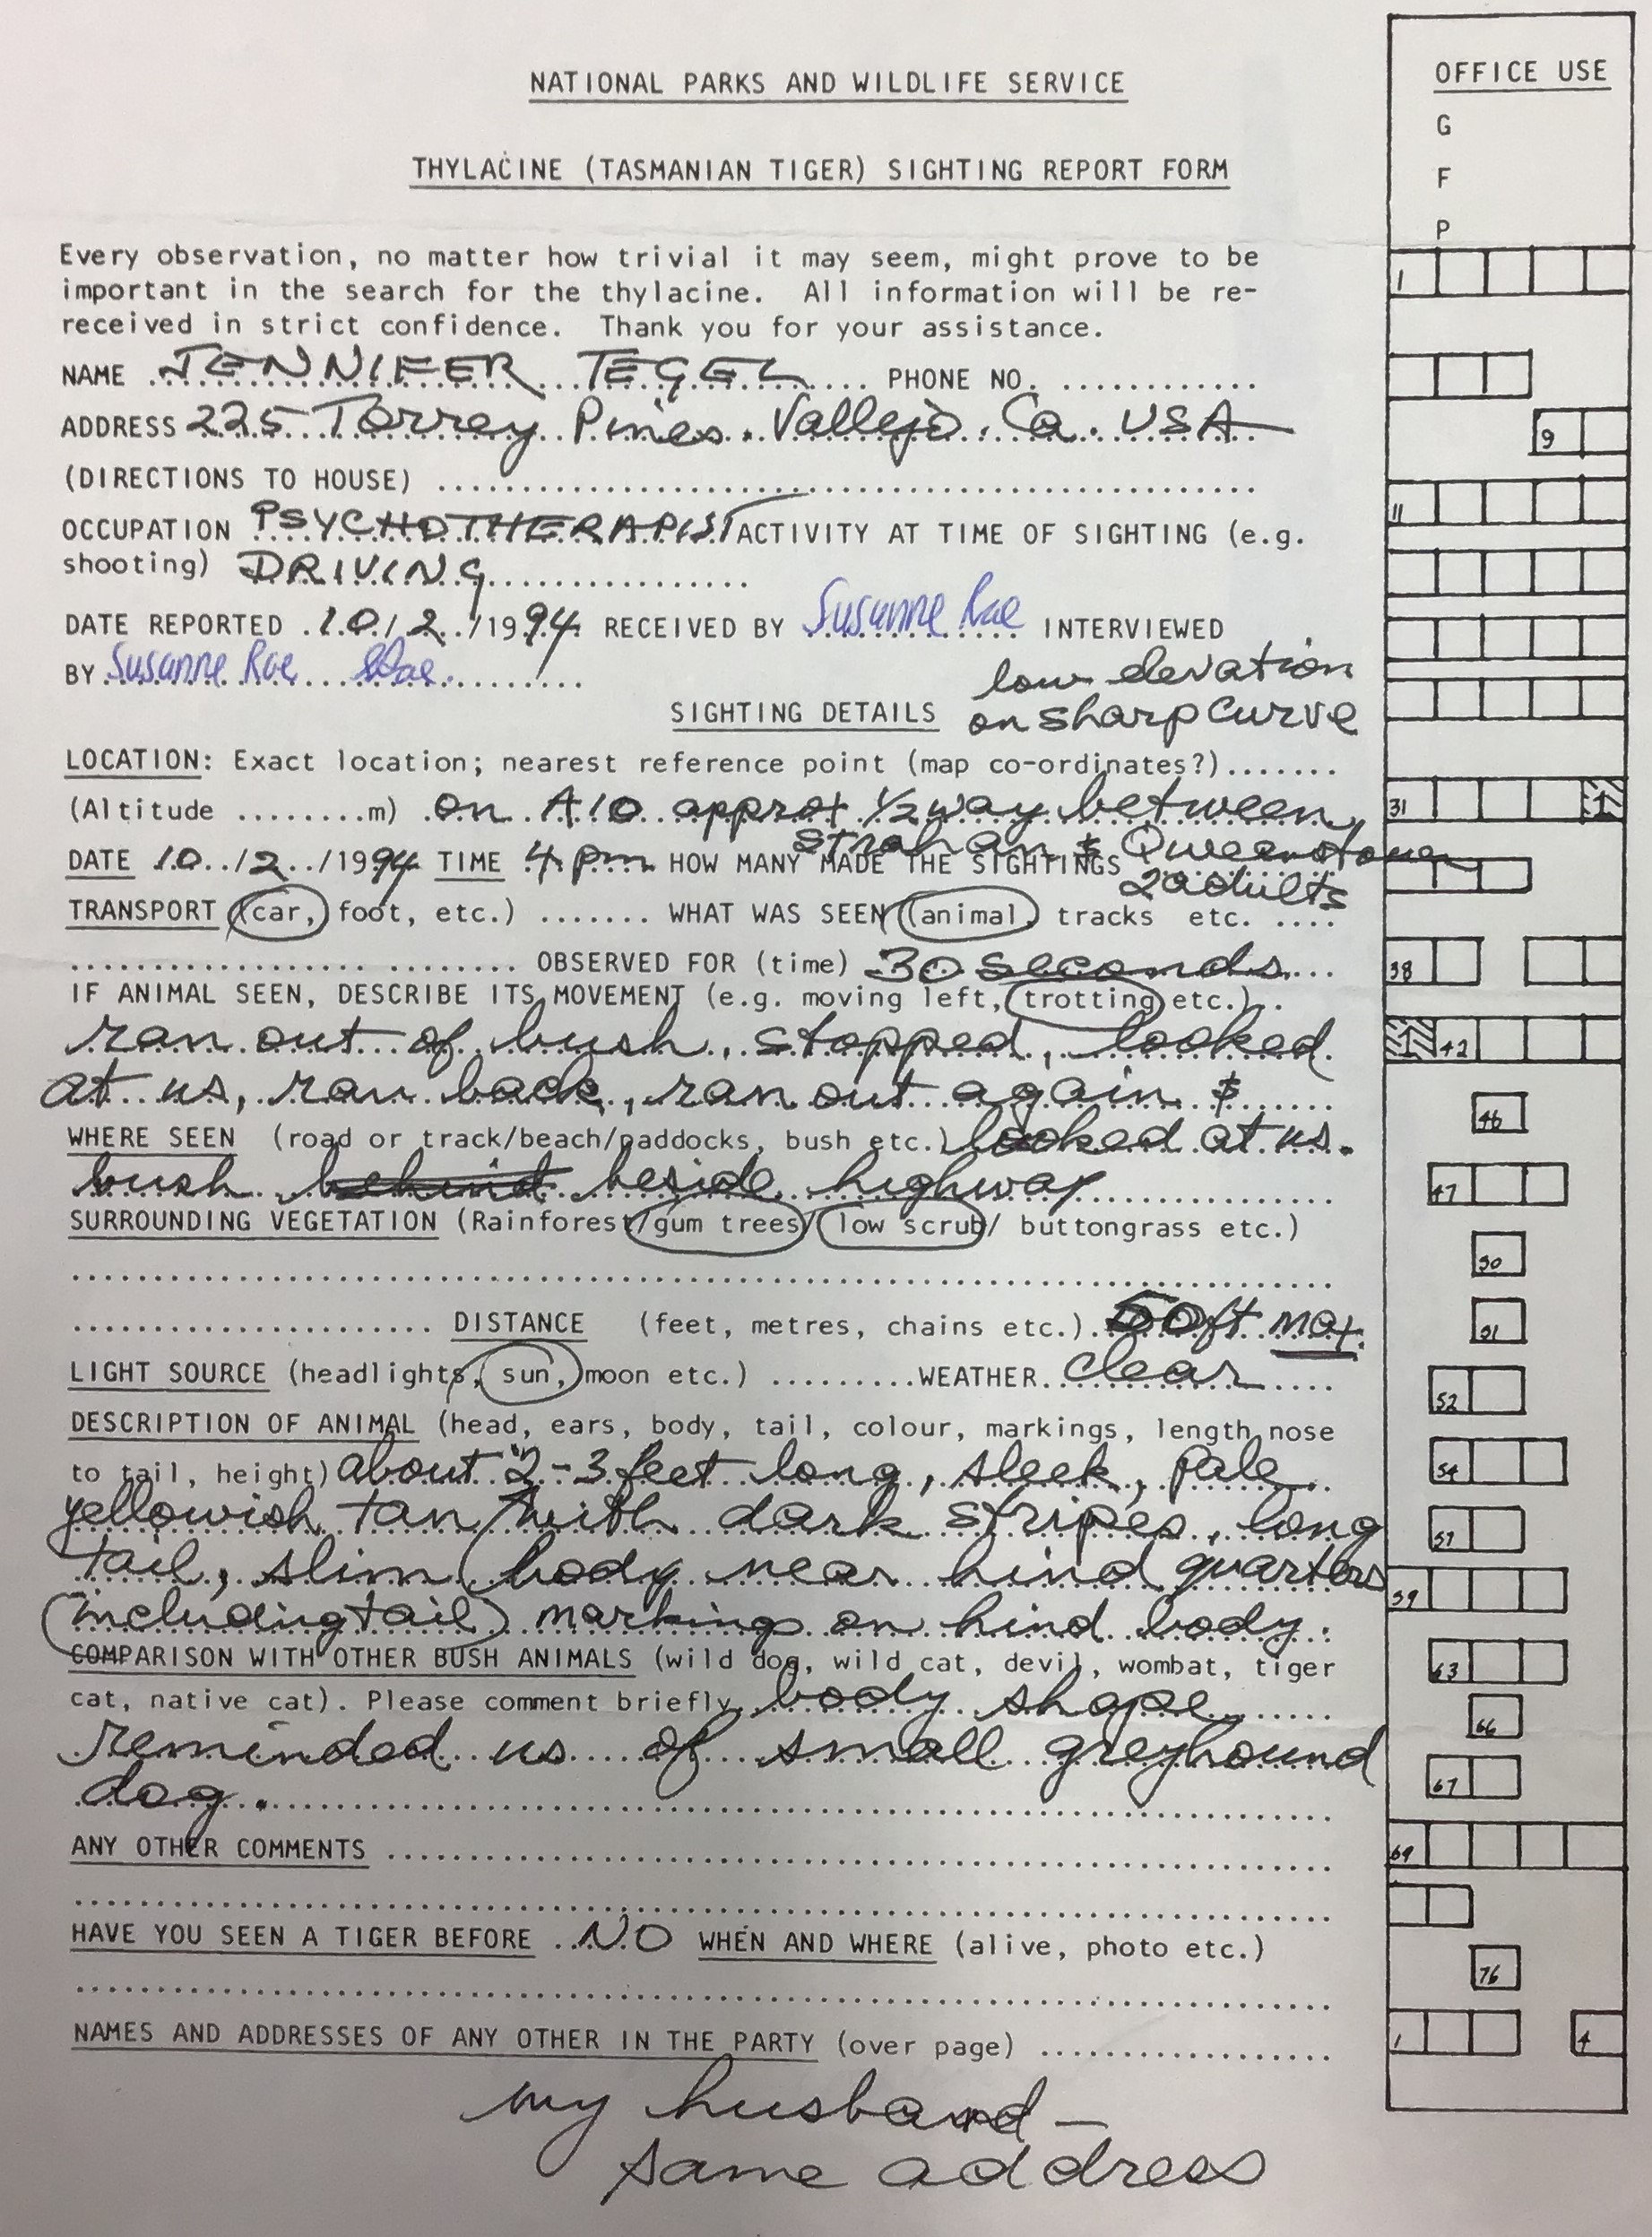 NATIONAL PARKS AND WILDLIFE SERVICE
THYLACINE (TASMANIAN TIGER) SIGHTING REPORT FORM
OFFICE USE
G
F
P
Every observation, no matter how trivial it may seem, might prove to be
important in the search for the thylacine. All information will be re-
received in strict confidence. Thank you for your assistance.
NAME JENNIFER TEGEL PHONE NO. ............
ADDRESS 225 Torrey Pines. Vallejo. Ca. USA
(DIRECTIONS TO HOUSE) ............
OCCUPATION PSYCHOTHERAPIST ACTIVITY AT TIME OF SIGHTING (e.g.
shooting) DRIVING ............
DATE REPORTED 10/2/1994 RECEIVED BY Susanne Rae INTERVIEWED
BY Susanne Rae
low elevation
SIGHTING DETAILS on sharp curve
LOCATION: Exact location; nearest reference point (map co-ordinates?).......
(Altitude ........m) on A10 approx 1/2 way between
Strahan & Queenstown
DATE 10/2/1994 TIME 4 pm HOW MANY MADE THE SIGHTINGS
2 adults
TRANSPORT (car, foot, etc.) ....... WHAT WAS SEEN (animal, tracks etc. ....
............ OBSERVED FOR (time) 30 seconds
IF ANIMAL SEEN, DESCRIBE ITS MOVEMENT (e.g. moving left, trotting etc.)..
ran out of bush, stopped, looked
at us, ran back, ran out again &
WHERE SEEN (road or track/beach/paddocks, bush etc.) looked at us.
bush behind beside highway
SURROUNDING VEGETATION (Rainforest/gum trees/ low scrub/ buttongrass etc.)
............
............ DISTANCE (feet, metres, chains etc.). 50 ft max.
LIGHT SOURCE (headlights, sun, moon etc.) .........WEATHER clear
DESCRIPTION OF ANIMAL (head, ears, body, tail, colour, markings, length nose
to tail, height) about 2-3 feet long, sleek, pale
yellowish tan with dark stripes, long
tail, slim body near hind quarters
(including tail) markings on hind body.
COMPARISON WITH OTHER BUSH ANIMALS (wild dog, wild cat, devil, wombat, tiger
cat, native cat). Please comment briefly. body shape
reminded us of small greyhound
dog.
ANY OTHER COMMENTS ............
............
HAVE YOU SEEN A TIGER BEFORE NO WHEN AND WHERE (alive, photo etc.)
............
NAMES AND ADDRESSES OF ANY OTHER IN THE PARTY (over page) ............
my husband —
same address
1
9
11
31
1
38
1
42
46
47
50
51
52
54
57
59
63
66
67
69
76
1
4